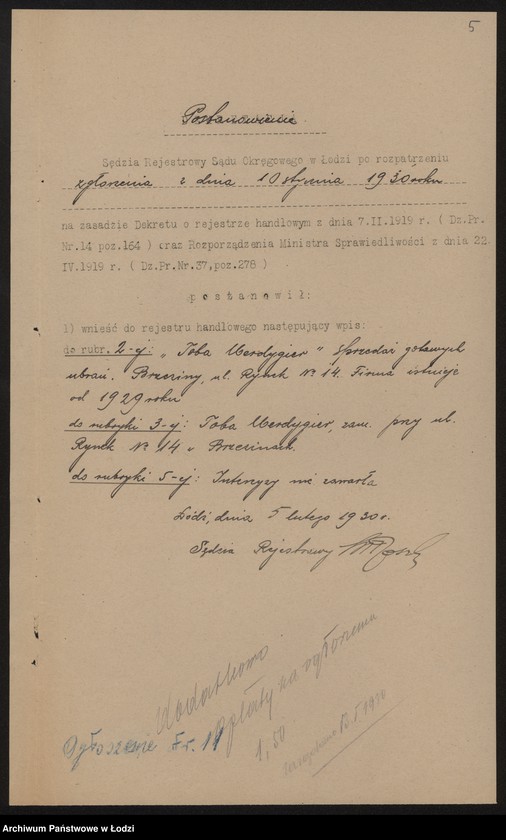 5
Postanowienie
Sędzia Rejestrowy Sądu Okręgowego w Łodzi po rozpatrzeniu
zgłoszenia z dnia 10 stycznia 1930 roku
na zasadzie Dekretu o rejestrze handlowym z dnia 7.II.1919 r. ( Dz.Pr.
Nr.14 poz.164 ) oraz Rozporządzenia Ministra Sprawiedliwości z dnia 22
IV.1919 r. ( Dz.Pr.Nr.37,poz.278 )
p o s t a n o w i ł :
1) wnieść do rejestru handlowego następujący wpis:
do rubr. 2-ej: „Toba Merdygier" Sprzedaż gotowych
ubrań. Brzeziny, ul. Rynek № 14. Firma istnieje
od 1929 roku
do rubryki 3-ej: Toba Merdygier, zam. przy ul.
Rynek № 14 w Brzezinach.
do rubryki 5-ej: Intercyzy nie zawarła
Łódź, dnia 5 lutego 1930 r.
Sędzia Rejestrowy
dodatkowo
opłaty za ogłoszenia
1,50
Ogłoszenie Fr. 11
1930
Archiwum Państwowe w Łodzi